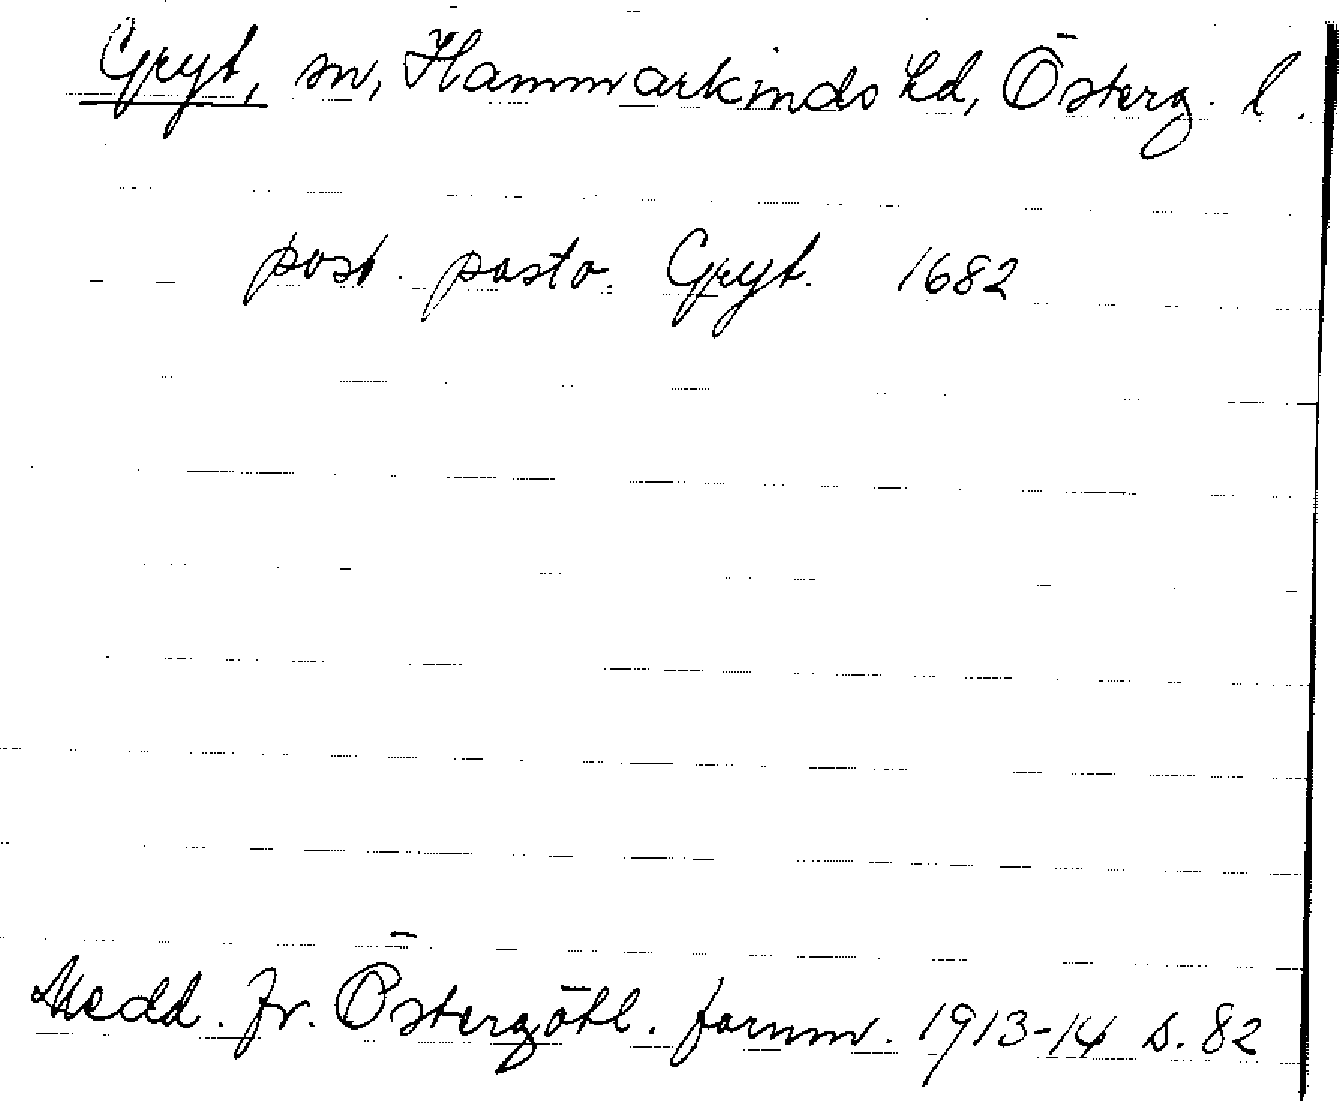 Gryt, sn, Hammarkinds hd, Österg. l.
post. pasto. Gryt. 1682
Medd. fr. Östergötl. fornm. 1913-14 s. 82